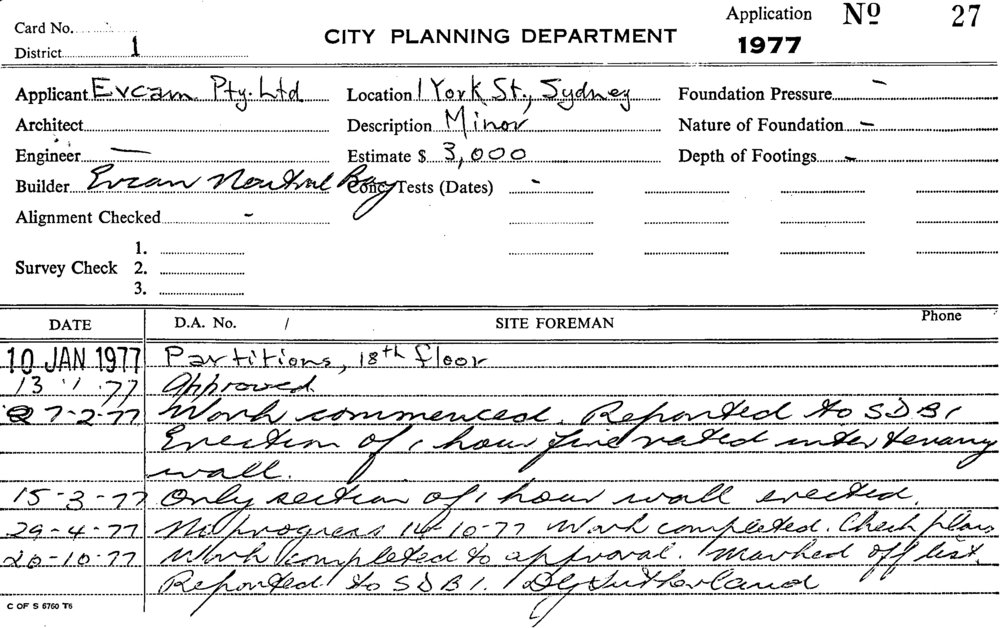 Card No.
District 1
CITY PLANNING DEPARTMENT
Application No 27
1977
Applicant Evcam Pty. Ltd
Location 1 York St., Sydney
Foundation Pressure -
Architect
Description Minor
Nature of Foundation -
Engineer —
Estimate $ 3,000
Depth of Footings -
Builder Evcan Neutral Bay
Conc. Tests (Dates) -
Alignment Checked -
Survey Check 1.
2.
3.
DATE D.A. No. / SITE FOREMAN Phone
10 JAN 1977 Partitions, 18th floor
13 1 77 Approved
7-2-77 Work commenced. Reported to SDB1
Erection of 1 hour fire rated inter tenancy
wall.
15-3-77 Only section of 1 hour wall erected.
29-4-77 No progress 14-10-77 Work completed. Check plans
20-10-77 Work completed to approval. Marked off list.
Reported to SDB1. Sutherland
C OF S 6760 T6